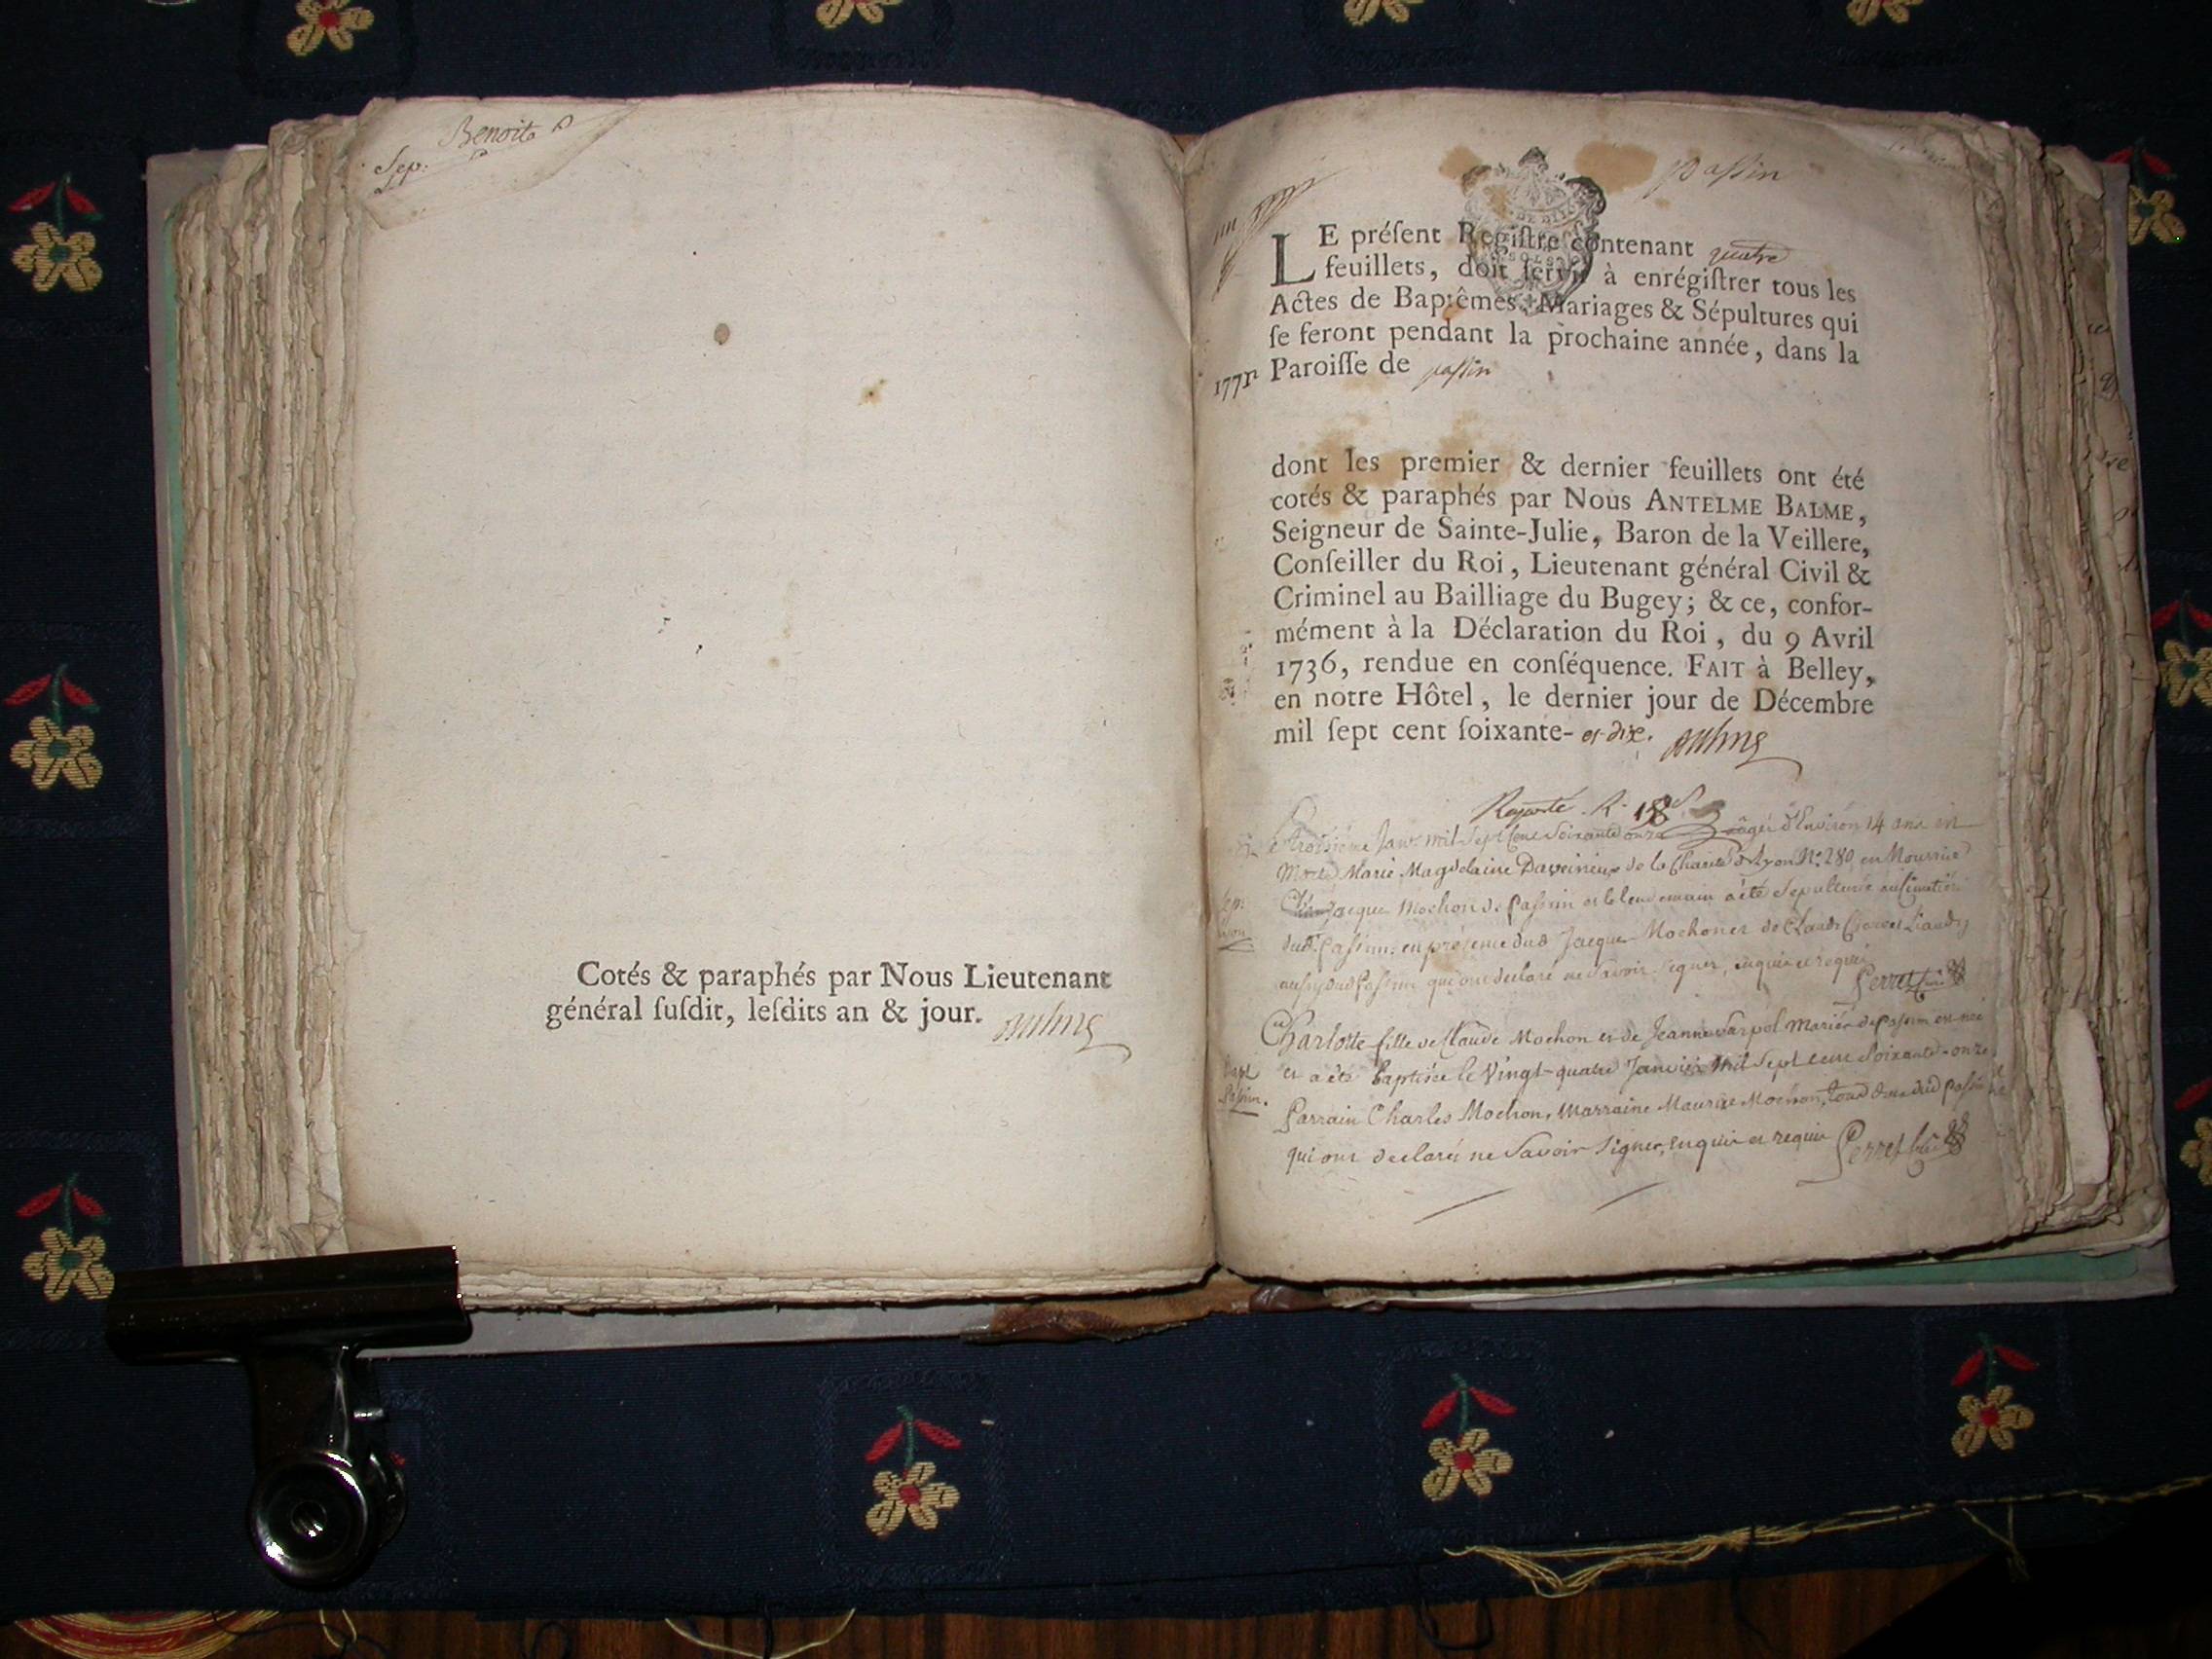 Benoite
Sep.
Cotés & paraphés par Nous Lieutenant
général ſuſdit, leſdits an & jour.
passin
LE préſent Regiſtre contenant quatre
feuillets, doit ſervir à enrégiſtrer tous les
Actes de Baptêmes, Mariages & Sépultures qui
ſe feront pendant la prochaine année, dans la
1771 Paroiſſe de passin
dont les premier & dernier feuillets ont été
cotés & paraphés par Nous ANTELME BALME,
Seigneur de Sainte-Julie, Baron de la Veillere,
Conſeiller du Roi, Lieutenant général Civil &
Criminel au Bailliage du Bugey; & ce, confor-
mément à la Déclaration du Roi, du 9 Avril
1736, rendue en conſéquence. FAIT à Belley,
en notre Hôtel, le dernier jour de Décembre
mil ſept cent ſoixante- et dix.
Le troisieme Janv. mil sept cent soixante onze agée d'Environ 14 ans est
Morte Marie Magdelaine de la Charité de Lyon N° 280 en Nourrice
Chez Jacque Mochon de Passin et le lendemain a été sepulturée au Cimetière
dud. Passin en présence dud Jacque Mochon et de Claude
aussy dud Passin qui ont declaré ne savoir signer, enquis et requis Perret
Charlotte fille de Claude Mochon et de Jeanne Mariés de Passin est née
et a été Baptisée le Vingt-quatre Janvier Mil Sept cent soixante-onze
Bapt
Passin.
Parrain Charles Mochon, Marraine Maurise Mochon, tous deux dud Passin
qui ont declarés ne Savoir signer, enquis et requis Perret